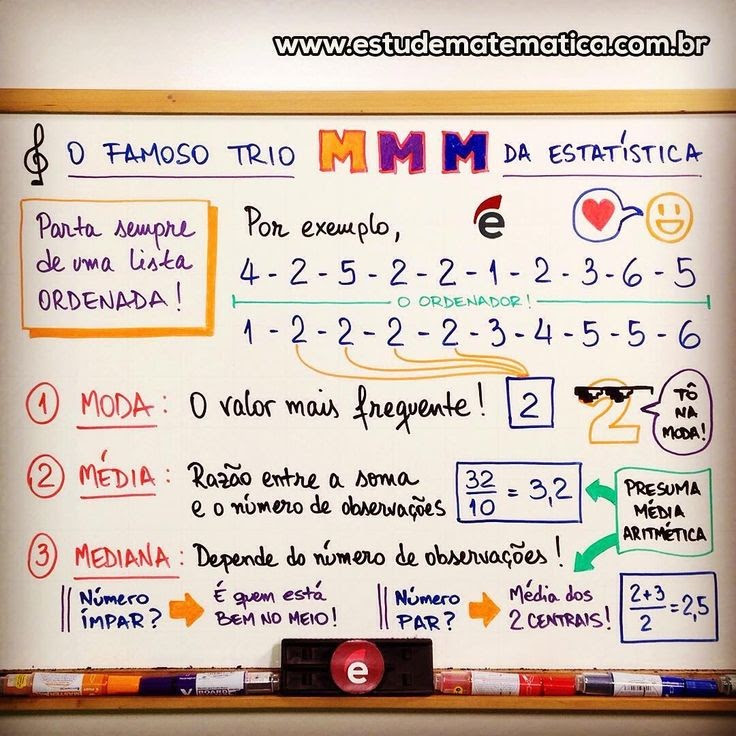 www.estudematematica.com.br
O FAMOSO TRIO MMM DA ESTATÍSTICA
Parta sempre
de uma lista
ORDENADA!
Por exemplo,
e
4 - 2 - 5 - 2 - 2 - 1 - 2 - 3 - 6 - 5
O ORDENADOR!
1 - 2 - 2 - 2 - 2 - 3 - 4 - 5 - 5 - 6
1 MODA: O valor mais frequente! 2
2
TÔ
NA
MODA!
2 MÉDIA: Razão entre a soma
e o número de observações
32/10 = 3,2
PRESUMA
MÉDIA
ARITMÉTICA
3 MEDIANA: Depende do número de observações!
Número
ÍMPAR?
É quem está
BEM NO MEIO!
Número
PAR?
Média dos
2 CENTRAIS!
2+3/2 = 2,5
e